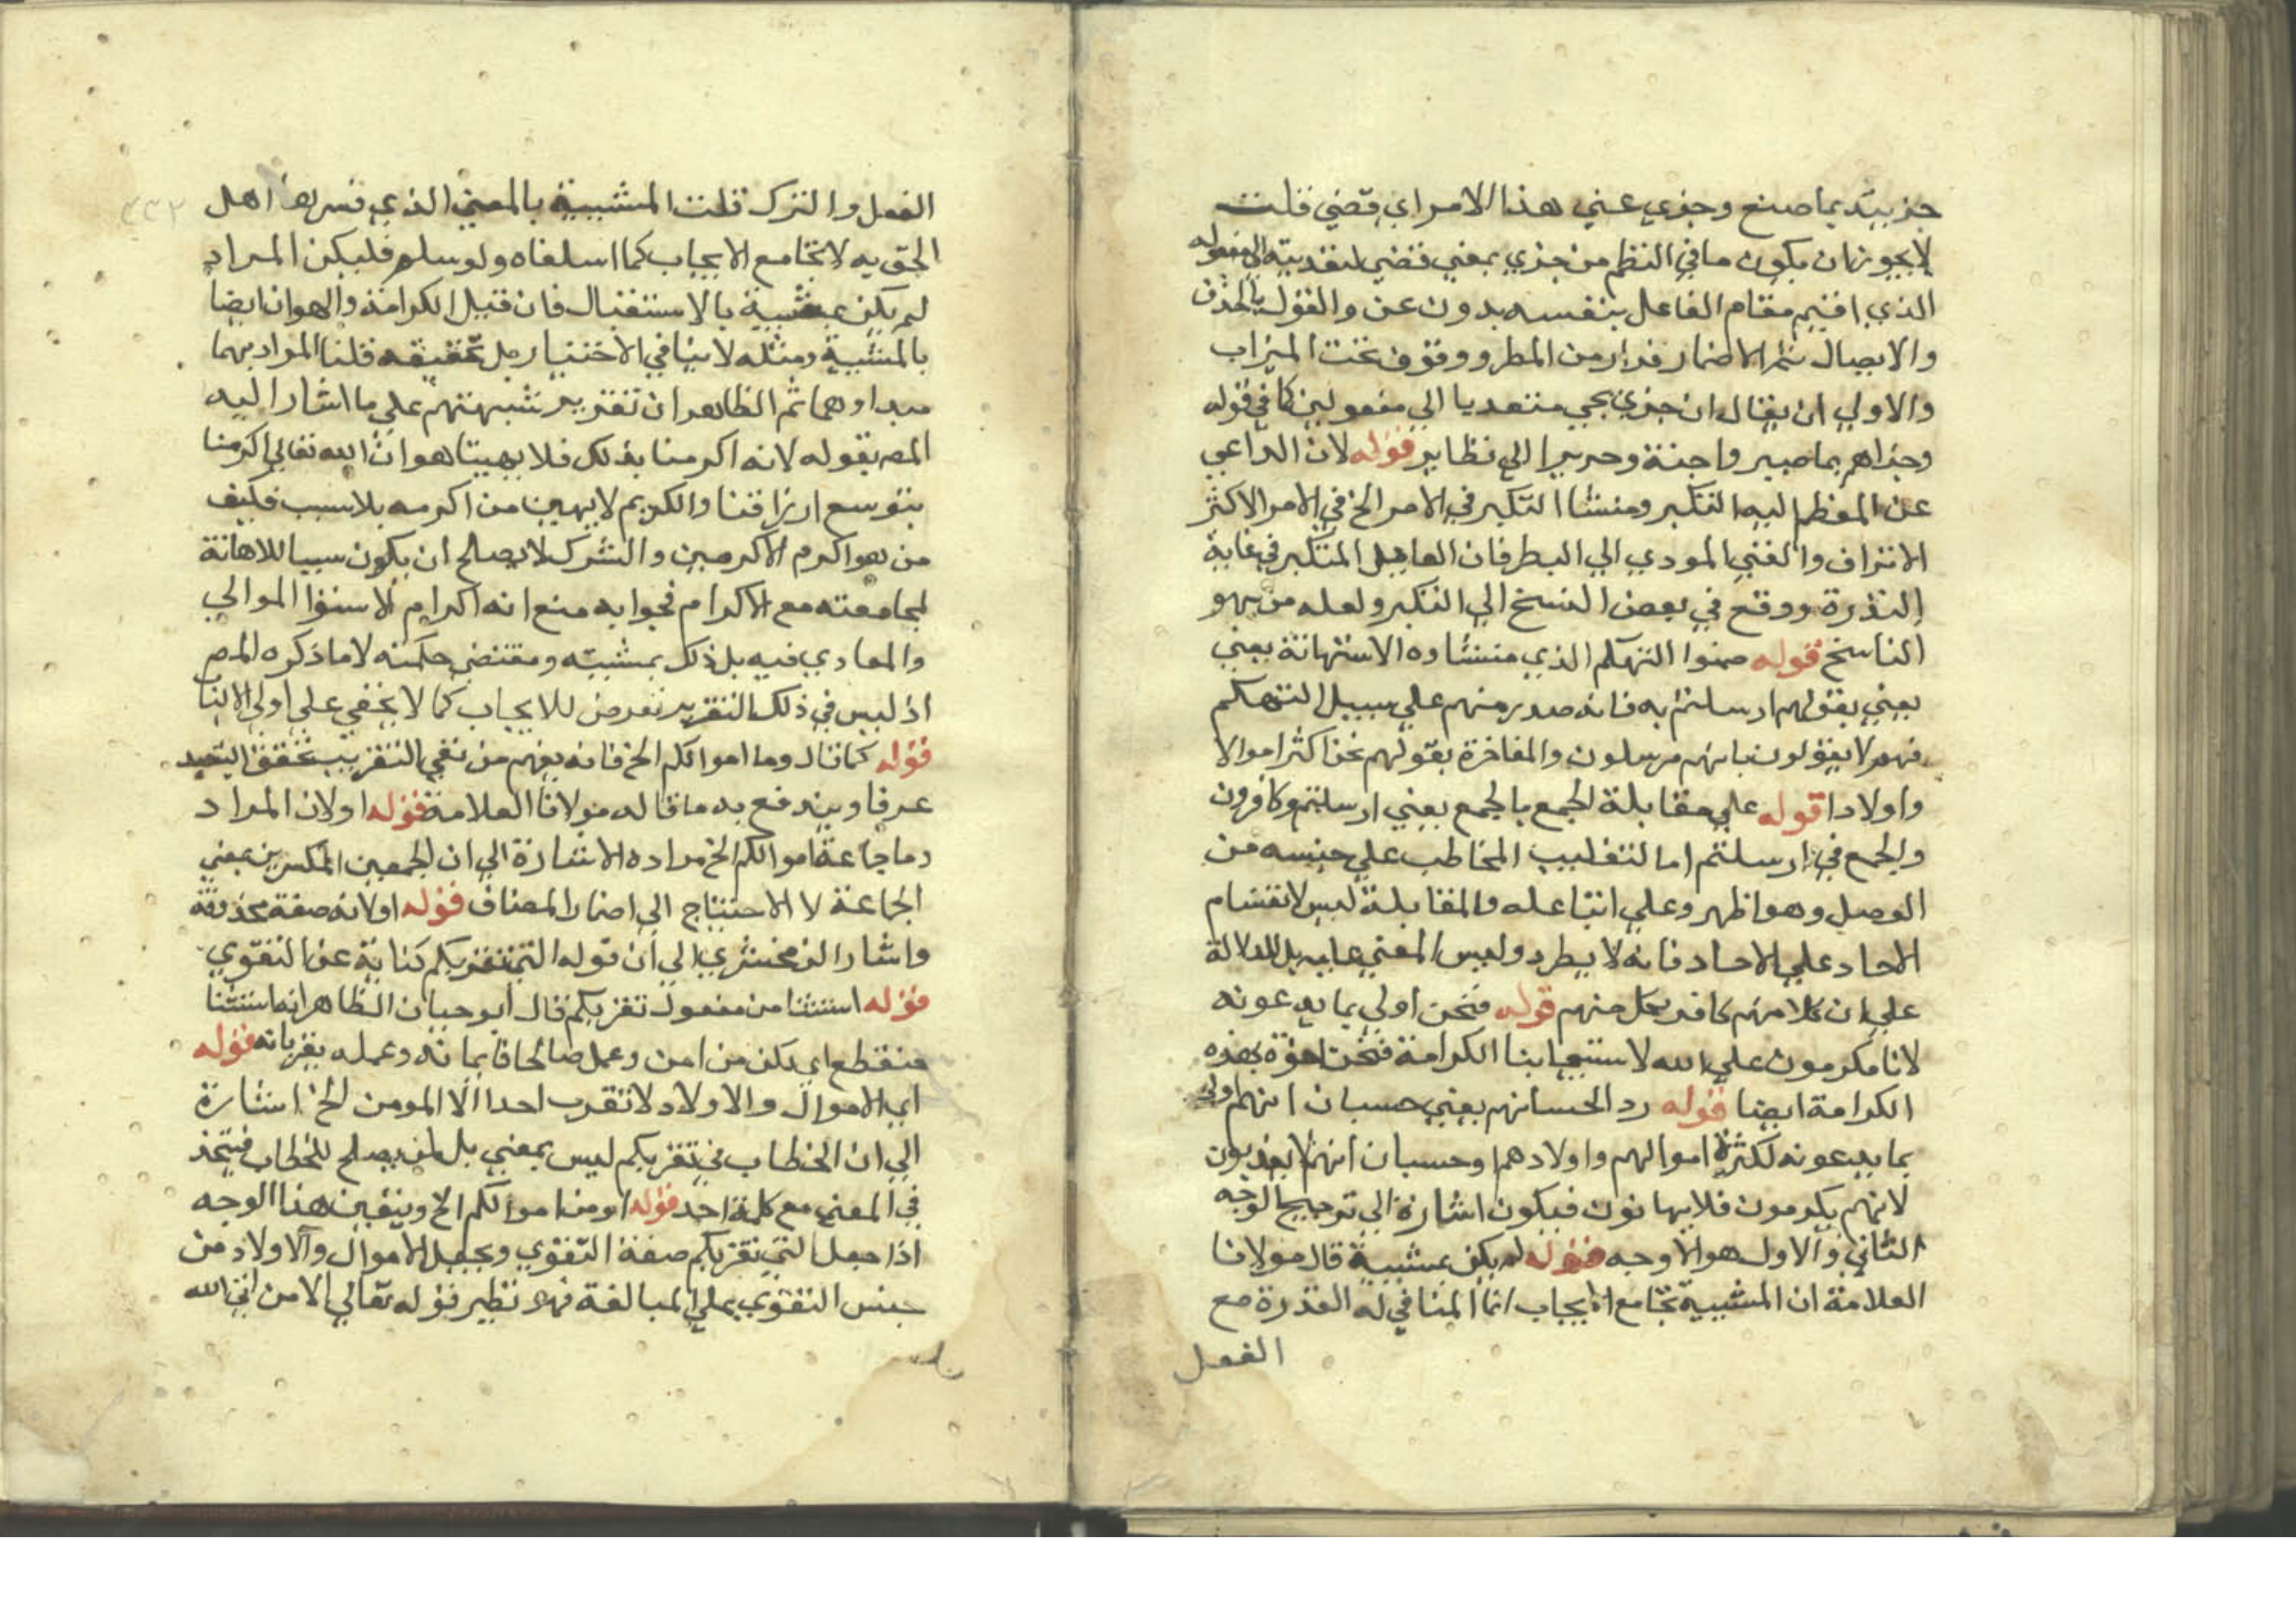 جزيته بما صنع وجزي عني هذا الامر اي قضي قلت
لا يجوز ان يكون ما في النظم من جزي بمعني قضي لتعديته الي مفعوله
الذي اقيم مقام الفاعل بنفسه بدون عن والقول بالحذف
والايصال ثم الاضمار فرار من المطر ووقوف تحت الميزاب
والاولي ان يقال ان جزي يجي متعديا الي مفعولين كما في قوله
وجزاهم بما صبروا جنة وحريرا الي نظاير قوله لان الداعي
عن المعظم اليه التكبر ومنشا التكبر في الامر الخ في الامر الاكثر
الاتراف والغني المودي الي البطر فان العاقل المتكبر في غاية
الندرة ووقع في بعض النسخ الي التكبر ولعله من سهو
الناسخ قوله ضموا التهكم الذي منشاوه الاستهانة يعني
يعني بقولهم ارسلتم به فانه صدر منهم علي سبيل التهكم
فهم لا يقولون بانهم مرسلون والمفاخرة بقولهم نحن اكثر اموالا
واولادا قوله علي مقابلة الجمع بالجمع يعني ارسلتم وكافرون
والجمع في ارسلتم اما لتغليب المخاطب علي جنسه من
الوصل وهو اظهر وعلي اتباعله والمقابلة ليس لانقسام
الاحاد علي الاحاد فانه لا يطرد وليس المعني عليه بل للدلالة
علي ان كلا منهم كافر بكل منهم قوله فنحن اولي بما يدعونه
لانا مكرمون علي الله لاستيجابنا الكرامة فنحن احق بهذه
الكرامة ايضا قوله رد الحسبانهم يعني حسبان انهم اولي
بما يدعونه لكثرة اموالهم واولادهم وحسبان انهم لا يعذبون
لانهم يكرمون فلا يهانون فيكون اشارة الي ترجيح الوجه
الثاني والاول هو الاوجه قوله لم يكن بمشيية قال مولانا
العلامة ان المشيية تجامع الايجاب انما المنافي له القدرة مع
الفعل
الفعل والترك قلت المشيية بالمعني الذي فسر بها اهل
الحق به لا تجامع الايجاب كما اسلفناه ولو سلم فليكن المراد
لم يكن بمشيية بالاستقبال فان قيل الكرامة والهوان ايضا
بالمشيية ومثله لا ينافي الاختيار بل تحقيقه قلنا المراد بهما
مبداوهما ثم الظاهر ان تقرير شبهتهم علي ما اشار اليه
المص بقوله لانه اكرمنا بذلك فلا يهيننا هو ان الله تعالي اكرمنا
بتوسع ارزاقنا والكريم لا يهين من اكرمه بلا سبب فكيف
من هو اكرم الاكرمين والشرك لا يصلح ان يكون سببا للاهانة
لمجامعته مع الاكرام فجوابه منع انه اكرام لاستوا الموالي
والمعادي فيه بل ذلك بمشيته ومقتضي حكمته لا ما ذكره المص
اذ ليس في ذلك التقرير تعرض للايجاب كما لا يخفي علي اولي الالباب
قوله كما قال وما اموالكم الخ فانه يفهم من نفي التقريب تحقق التبعيد
عرفا ويندفع به ما قاله مولانا العلامة قوله او لان المراد
وما جماعة اموالكم الخ مراده الاشارة الي ان الجمعين المكسرين بمعني
الجماعة لا الاحتياج الي اضمار المضاف قوله او لانه صفة محذوف
واشار الزمخشري الي ان قوله التي تقربكم كناية عن التقوي
قوله استثنا من مفعول تقربكم قال ابو حيان الظاهر انه استثنا
منقطع اي لكن من امن وعمل صالحا فايمانه وعمله يقربانه قوله
اي الاموال والاولاد لا تقرب احدا الا المومن الخ اشارة
الي ان الخطاب في تقربكم ليس بمعني بل لمن يصلح للخطاب فيتحد
في المعني مع كلمة احد قوله او من اموالكم الخ ويتعين هذا الوجه
اذا جعل التي تقربكم صفة التقوي ويجعل الاموال والاولاد من
جنس التقوي علي المبالغة فهو نظير قوله تعالي الا من اتي الله